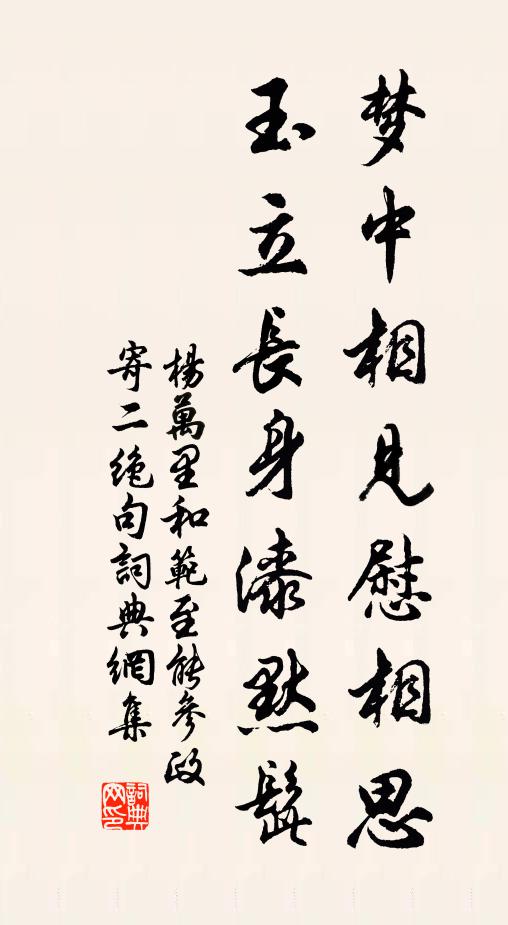 梦中相見慰相思
玉立長身漆點髭
楊萬里和範至能參政
寄二絶句詞典網集
詞典
网印